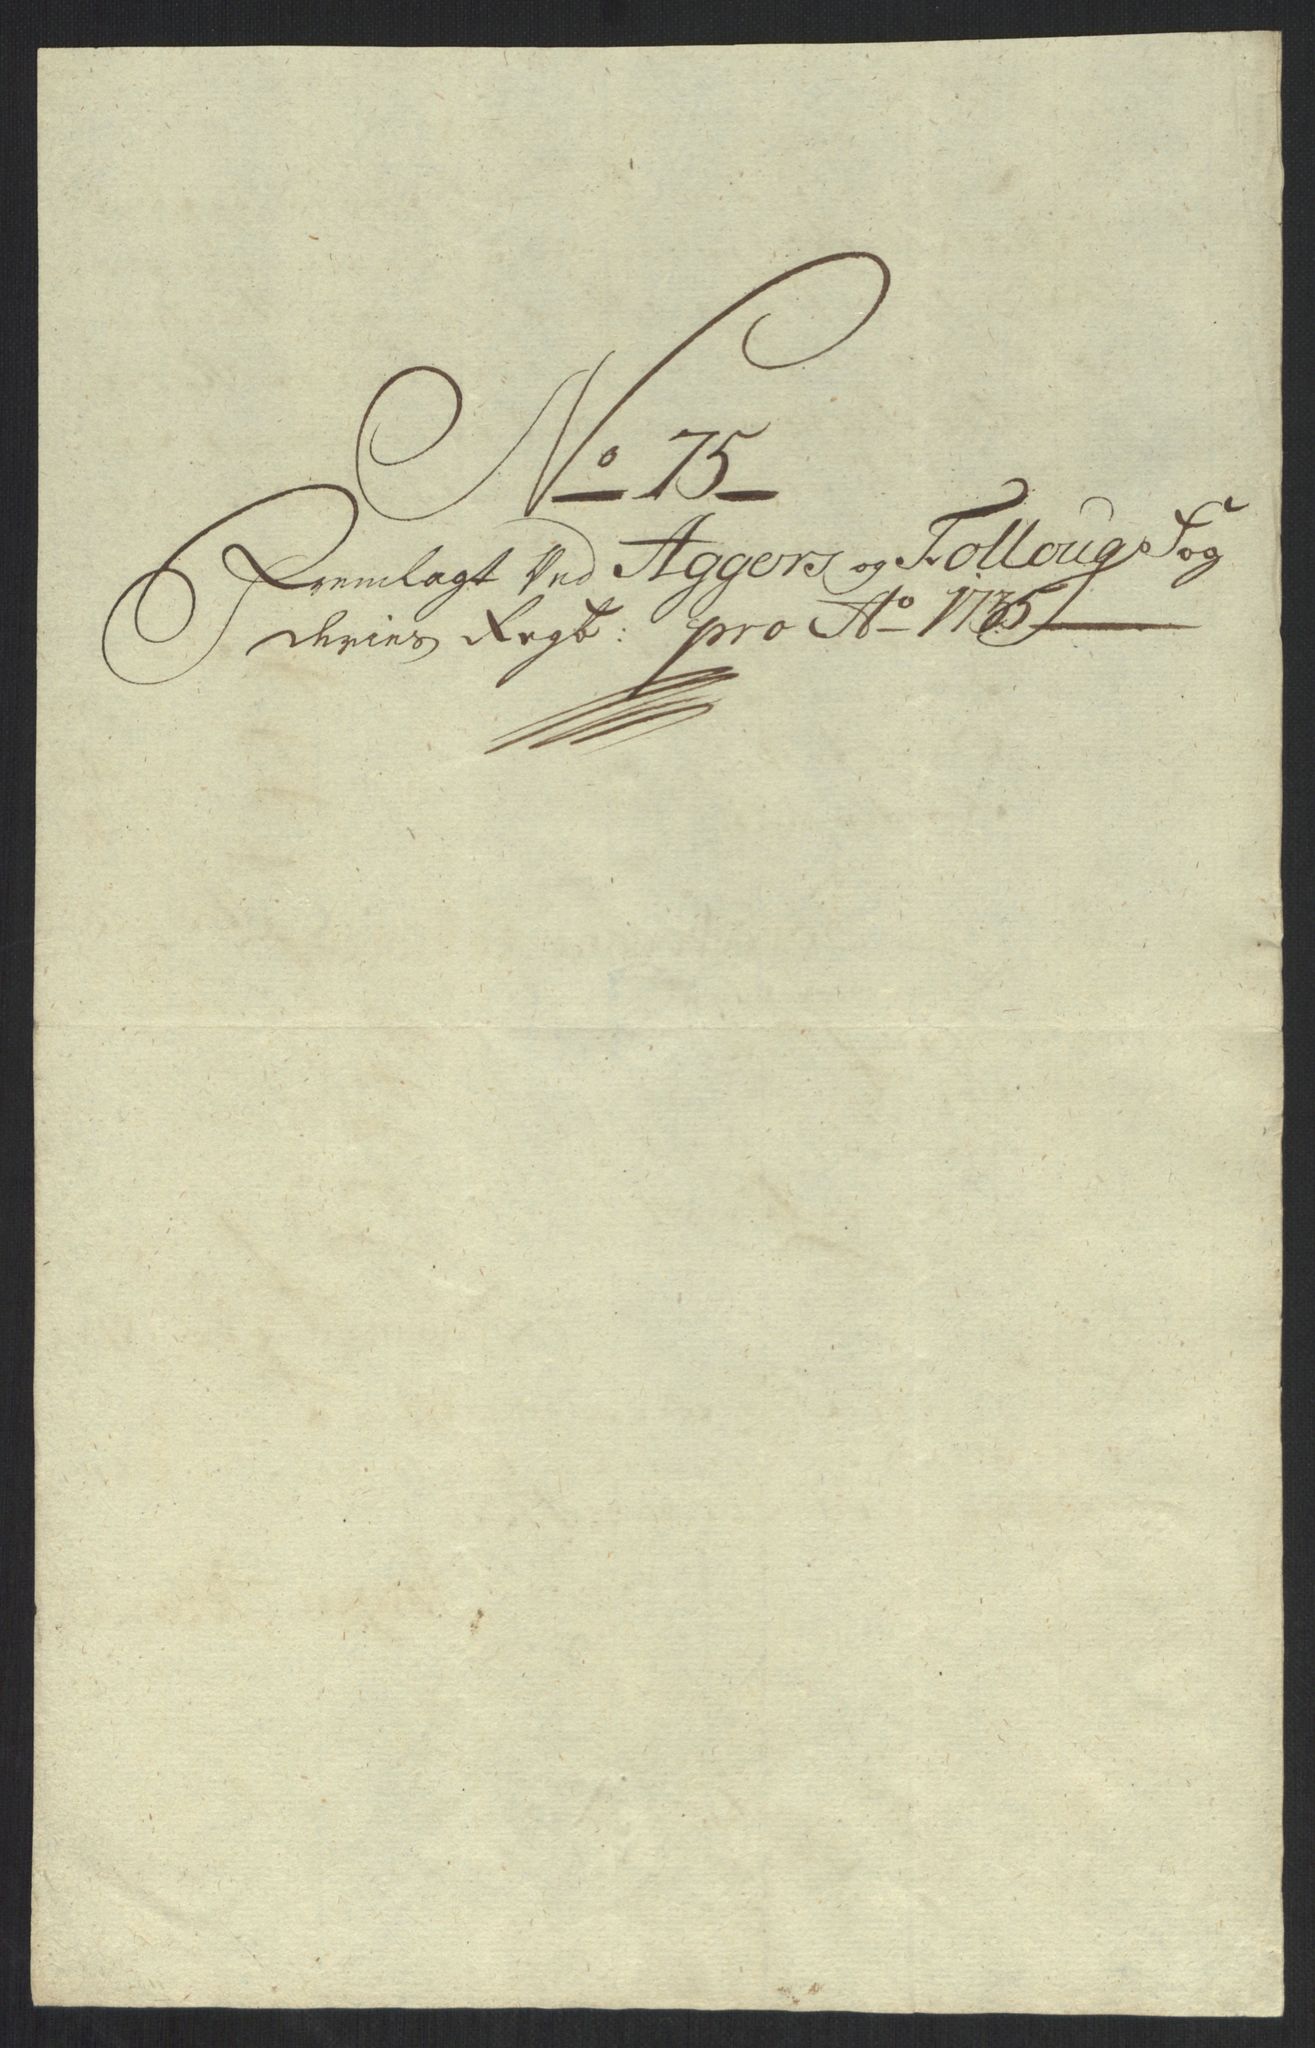 No 75
Fremlagt Ved Aggers og Follougs Fog
deries Regb: pro Ao 1735